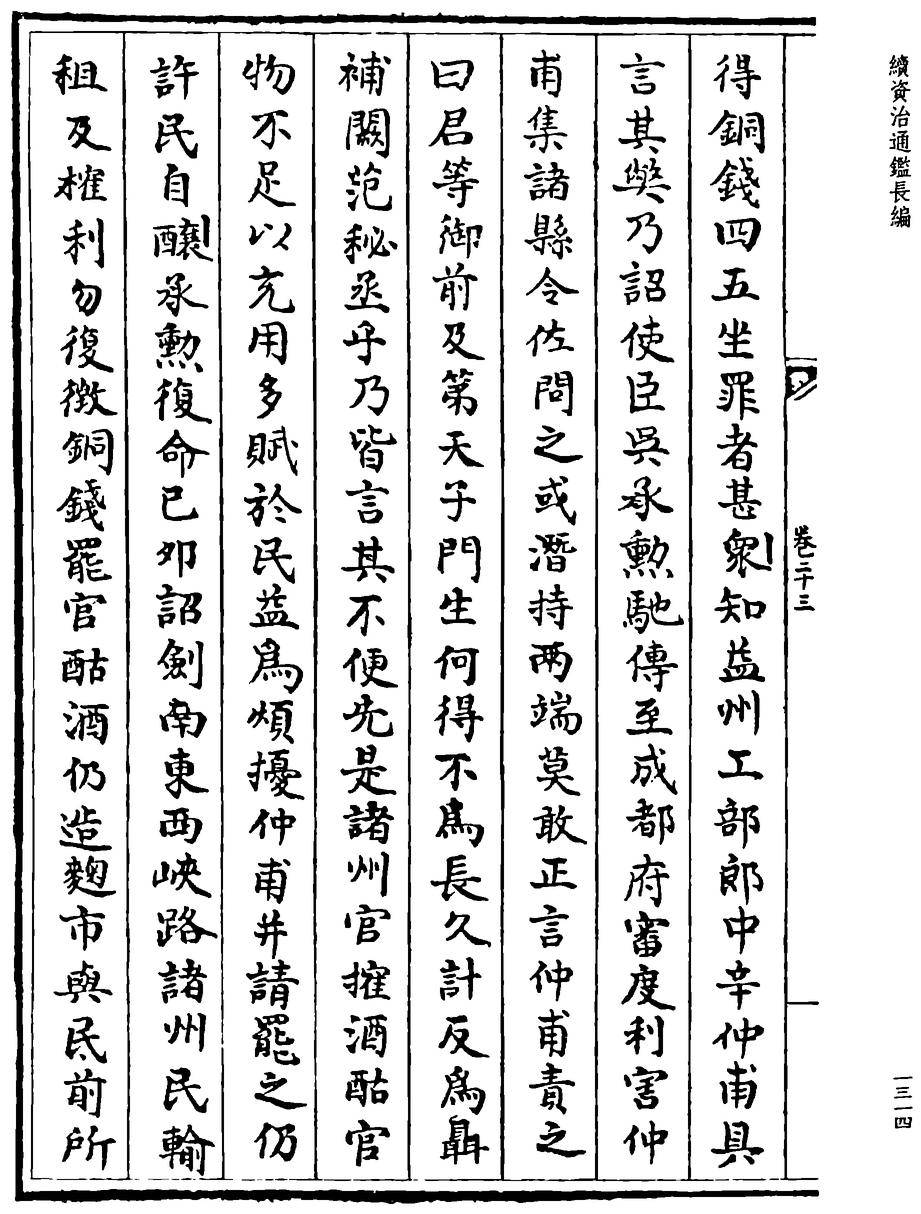 續資治通鑑長編
卷二十三
一三一四
得銅錢四五坐罪者甚衆知益州工部郎中辛仲甫具
言其弊乃詔使臣吳承勲馳傳至成都府審度利害仲
甫集諸縣令佐問之或潛持两端莫敢正言仲甫責之
曰君等御前及第天子門生何得不為長久計反為聶
補闕范秘丞乎乃皆言其不便先是諸州官搉酒酤官
物不足以充用多賦於民益為煩擾仲甫并請罷之仍
許民自釀承勲復命已夘詔劍南東西峽路諸州民輸
租及榷利勿復徴銅錢罷官酤酒仍造麴市與民前所